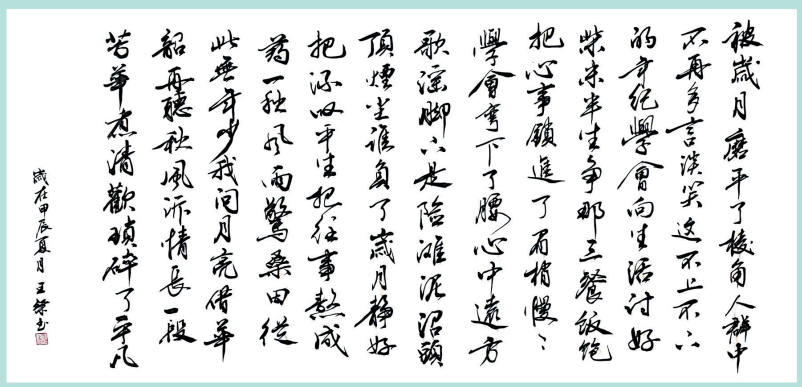 被歲月磨平了棱角人群中
不再多言談笑这不上不下
的年紀學會向生活討好
柴米半生争那三餐飯飽
把心事鎖進了眉梢慢〻
學會彎下了腰心中遠方
歌謠脚下是陷灘泥沼頭
頂煙尘誰負了歲月靜好
把深叹平生把往事熬成
药一秋風雨驚桑田從
此無年少我问月亮借華
韶再聽秋風訴情長一段
苦華煮清歡瑣碎了平凡
歲在甲辰夏月王